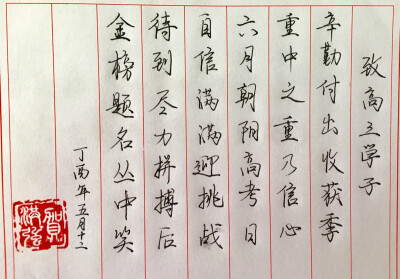 致高三学子
辛勤付出收获季
重中之重乃信心
六月朝阳高考日
自信满满迎挑战
待到尽力拼搏后
金榜题名丛中笑
丁酉年五月十二